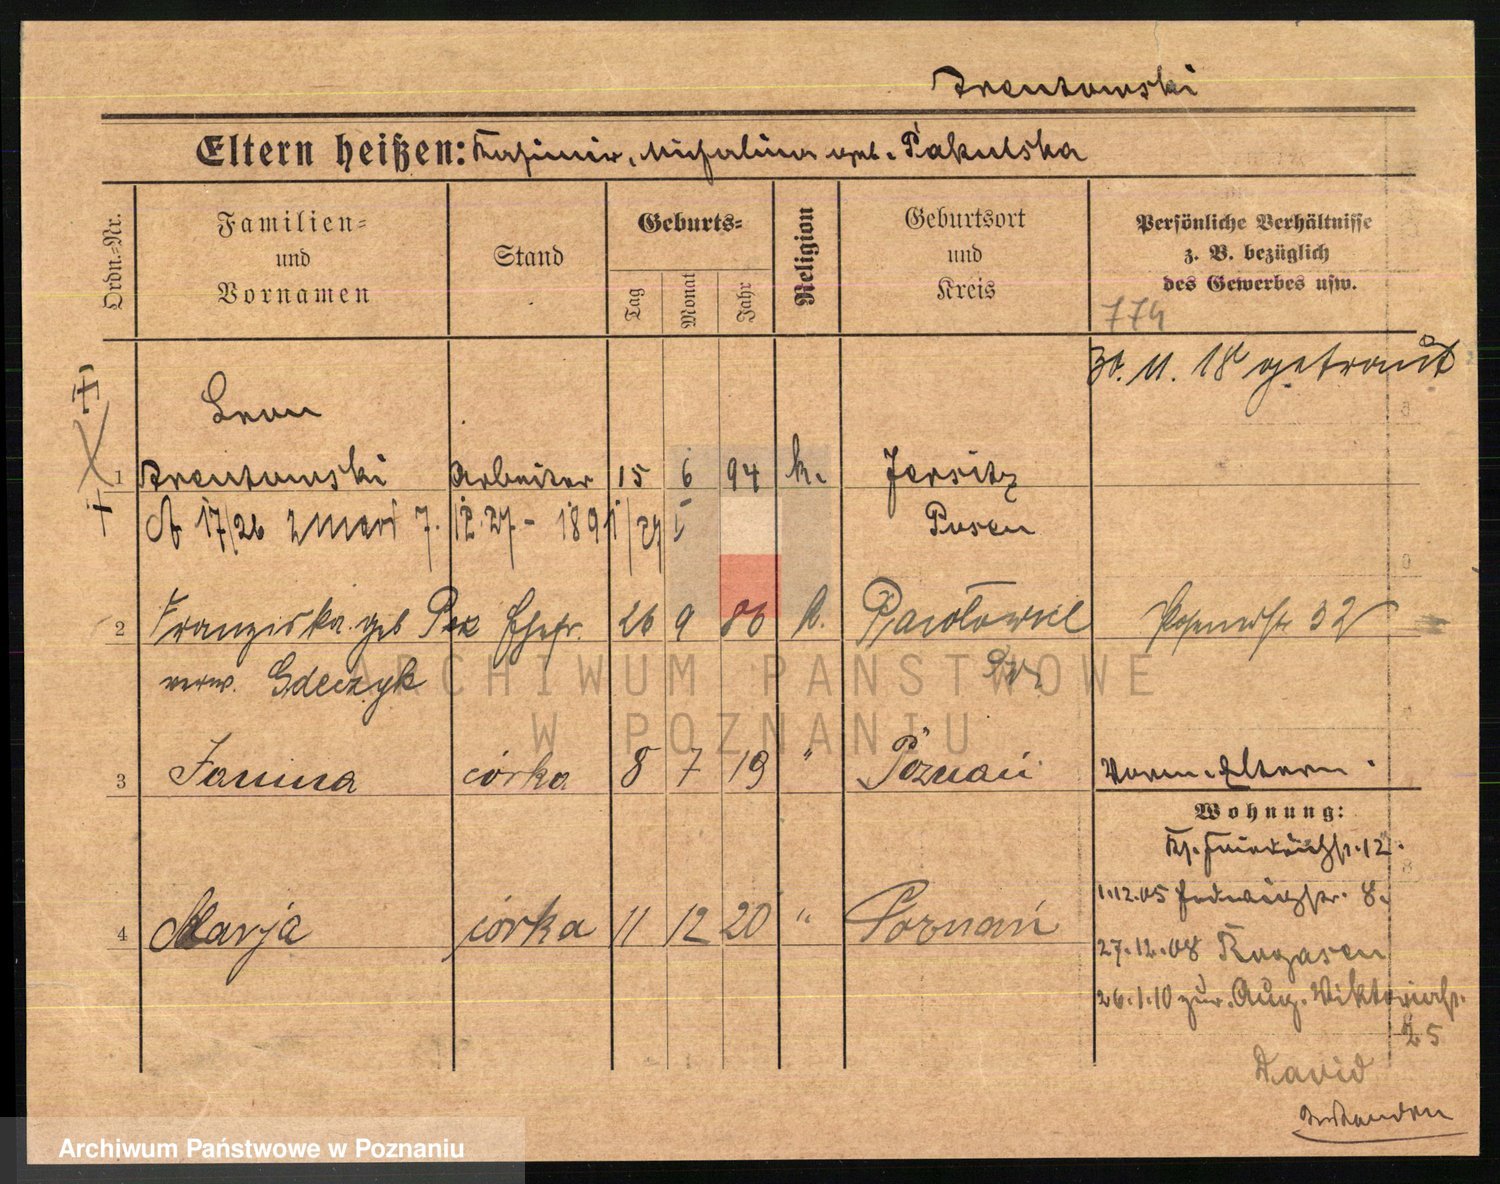 Trentowski
Eltern heißen: Kasimir, Michalina geb. Pakulska
Ordn.-Nr.
Familien-
und
Vornamen
Stand
Geburts-
Tag
Monat
Jahr
Religion
Geburtsort
und
Kreis
Persönliche Verhältnisse
z. B. bezüglich
des Gewerbes usw.
774
30. 11. 18 getraut
Leon
1 Trentowski Arbeiter 15 6 94 k. Jersitz
17/26 7. 12. 27 - 1891/27 Posen
2 Franziska geb Ehefr. 26 9 86 k. Posenerstr 32
verw. Gdeczyk
3 Janina córka 8 7 19 " Poznań Vorm. Eltern
Wohnung:
Kl. Friedrichstr. 12.
4 Marja córka 11 12 20 " Poznań 1.12.05 Hedwigstr. 8.
27.12.08 Rogasen
26.1.10 zur. Aug. Viktoriastr.
25
David
ARCHIWUM PAŃSTWOWE
W POZNANIU
Archiwum Państwowe w Poznaniu